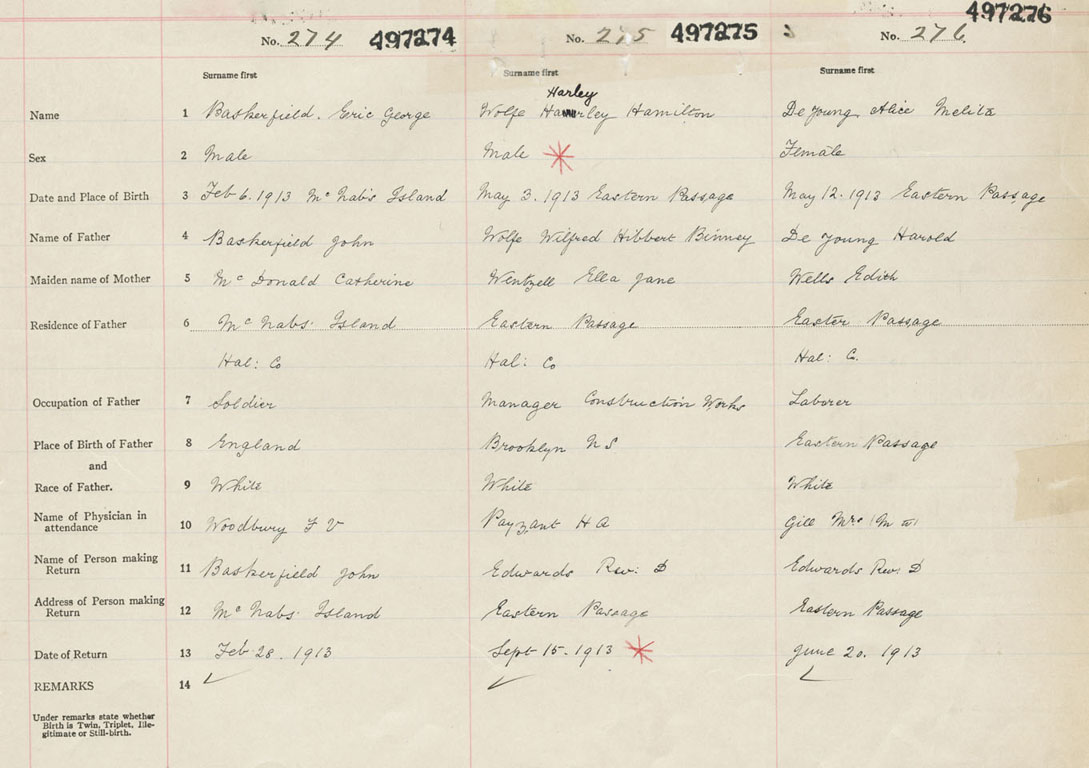 No. 274 497274 No. 275 497275 No. 276 497276
Surname first Surname first Surname first
Harley
Name 1 Baskerfield. Eric George Wolfe Hamilton De Young, Alice Melita
Sex 2 Male Male Female
Date and Place of Birth 3 Feb 6. 1913 Mc Nab's Island May 3. 1913 Eastern Passage May 12. 1913 Eastern Passage
Name of Father 4 Baskerfield John Wolfe Wilfred Hibbert Binney De Young Harold
Maiden name of Mother 5 Mc Donald Catherine Wentzell Ella Jane Wells Edith
Residence of Father 6 Mc Nabs Island Eastern Passage Easter Passage
Hal: Co Hal: Co Hal: C.
Occupation of Father 7 Soldier Manager Construction Works Laborer
Place of Birth of Father 8 England Brooklyn N S Eastern Passage
and
Race of Father. 9 White White White
Name of Physician in
attendance 10 Woodbury F V Payzant H A Gill Mrs (M W)
Name of Person making
Return 11 Baskerfield John Edwards Rev: D Edwards Rev: D
Address of Person making
Return 12 Mc Nabs Island Eastern Passage Eastern Passage
Date of Return 13 Feb 28. 1913 Sept 15. 1913 June 20. 1913
REMARKS 14
Under remarks state whether
Birth is Twin, Triplet, Ille-
gitimate or Still-birth.